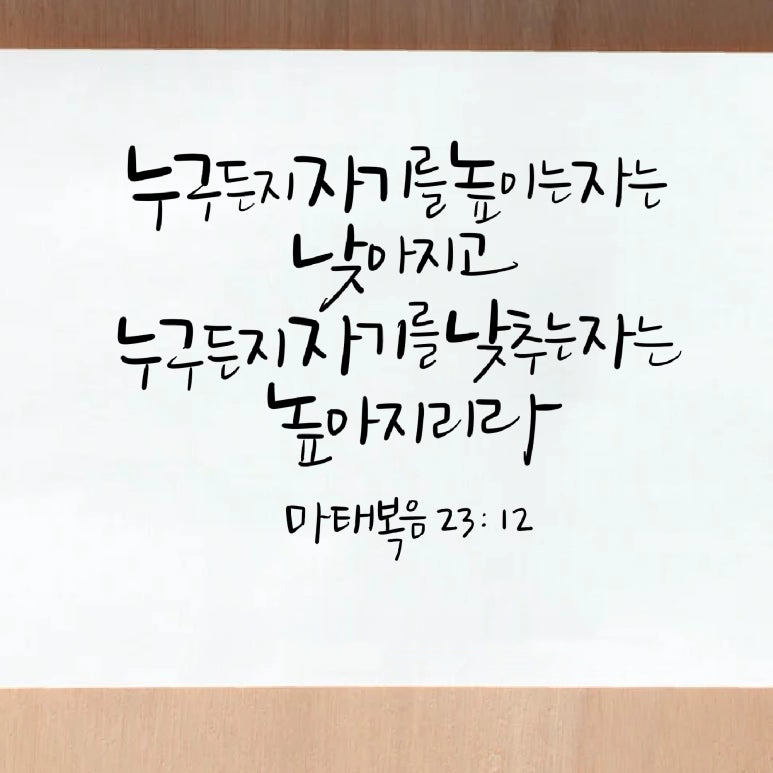 누구든지 자기를 높이는 자는
낮아지고
누구든지 자기를 낮추는 자는
높아지리라
마태복음 23:12